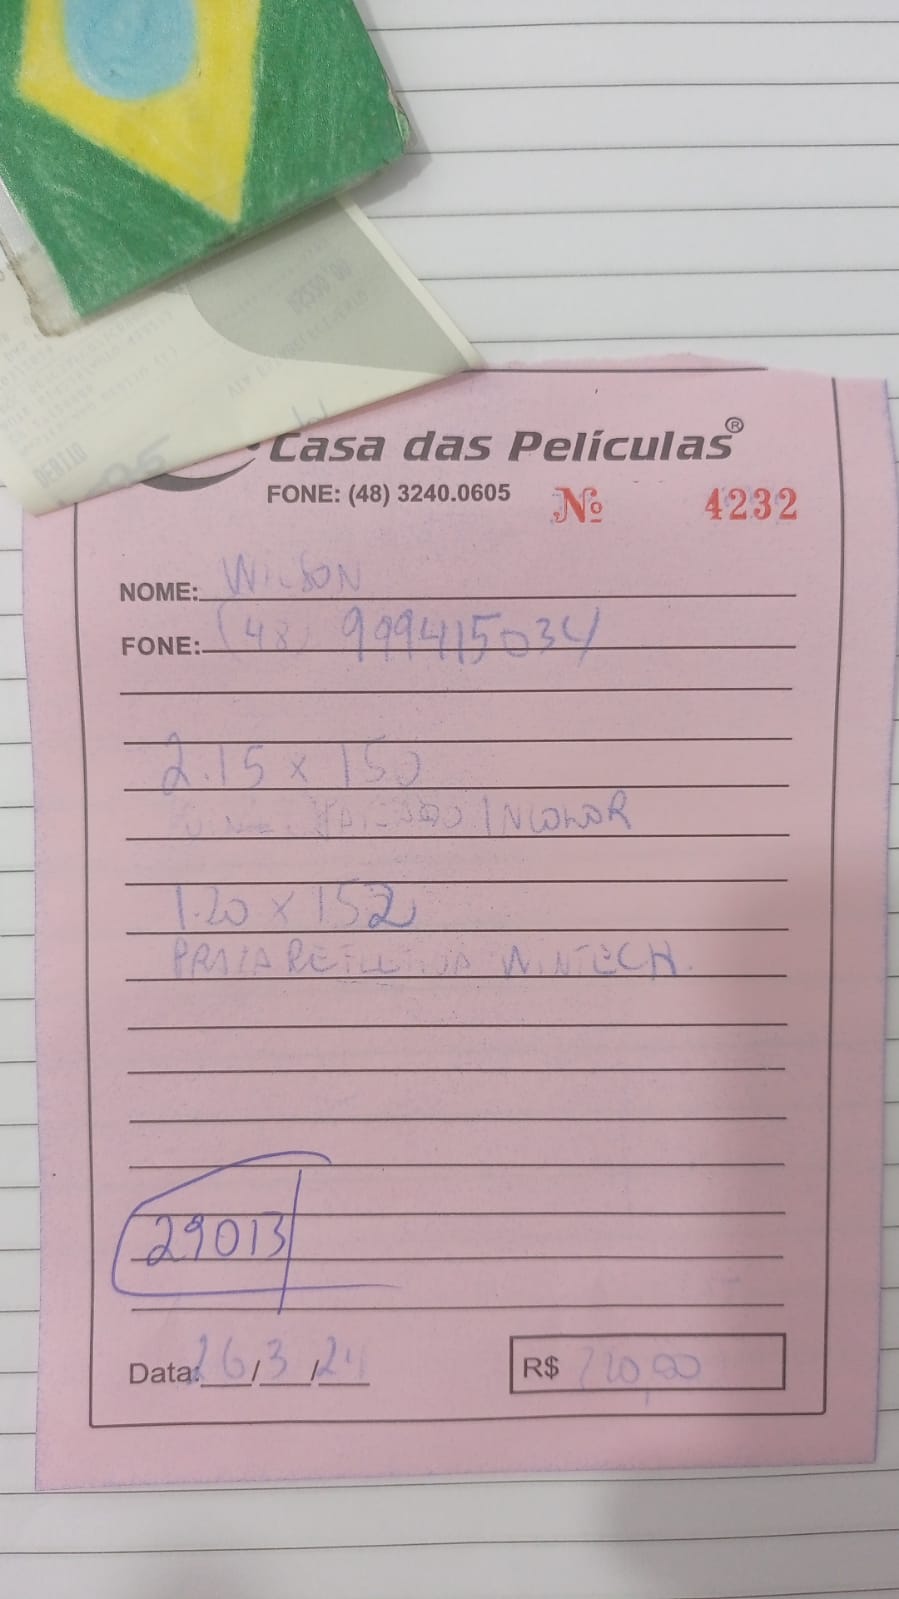 Casa das Películas®
FONE: (48) 3240.0605 Nº 4232
NOME: WILSON
FONE: (48) 999415034
2.15 x 150
INCOLOR
1.20 x 152
PRATA REFLETIVA WINTECH.
29013
Data: 26/3/24 R$ 220,00